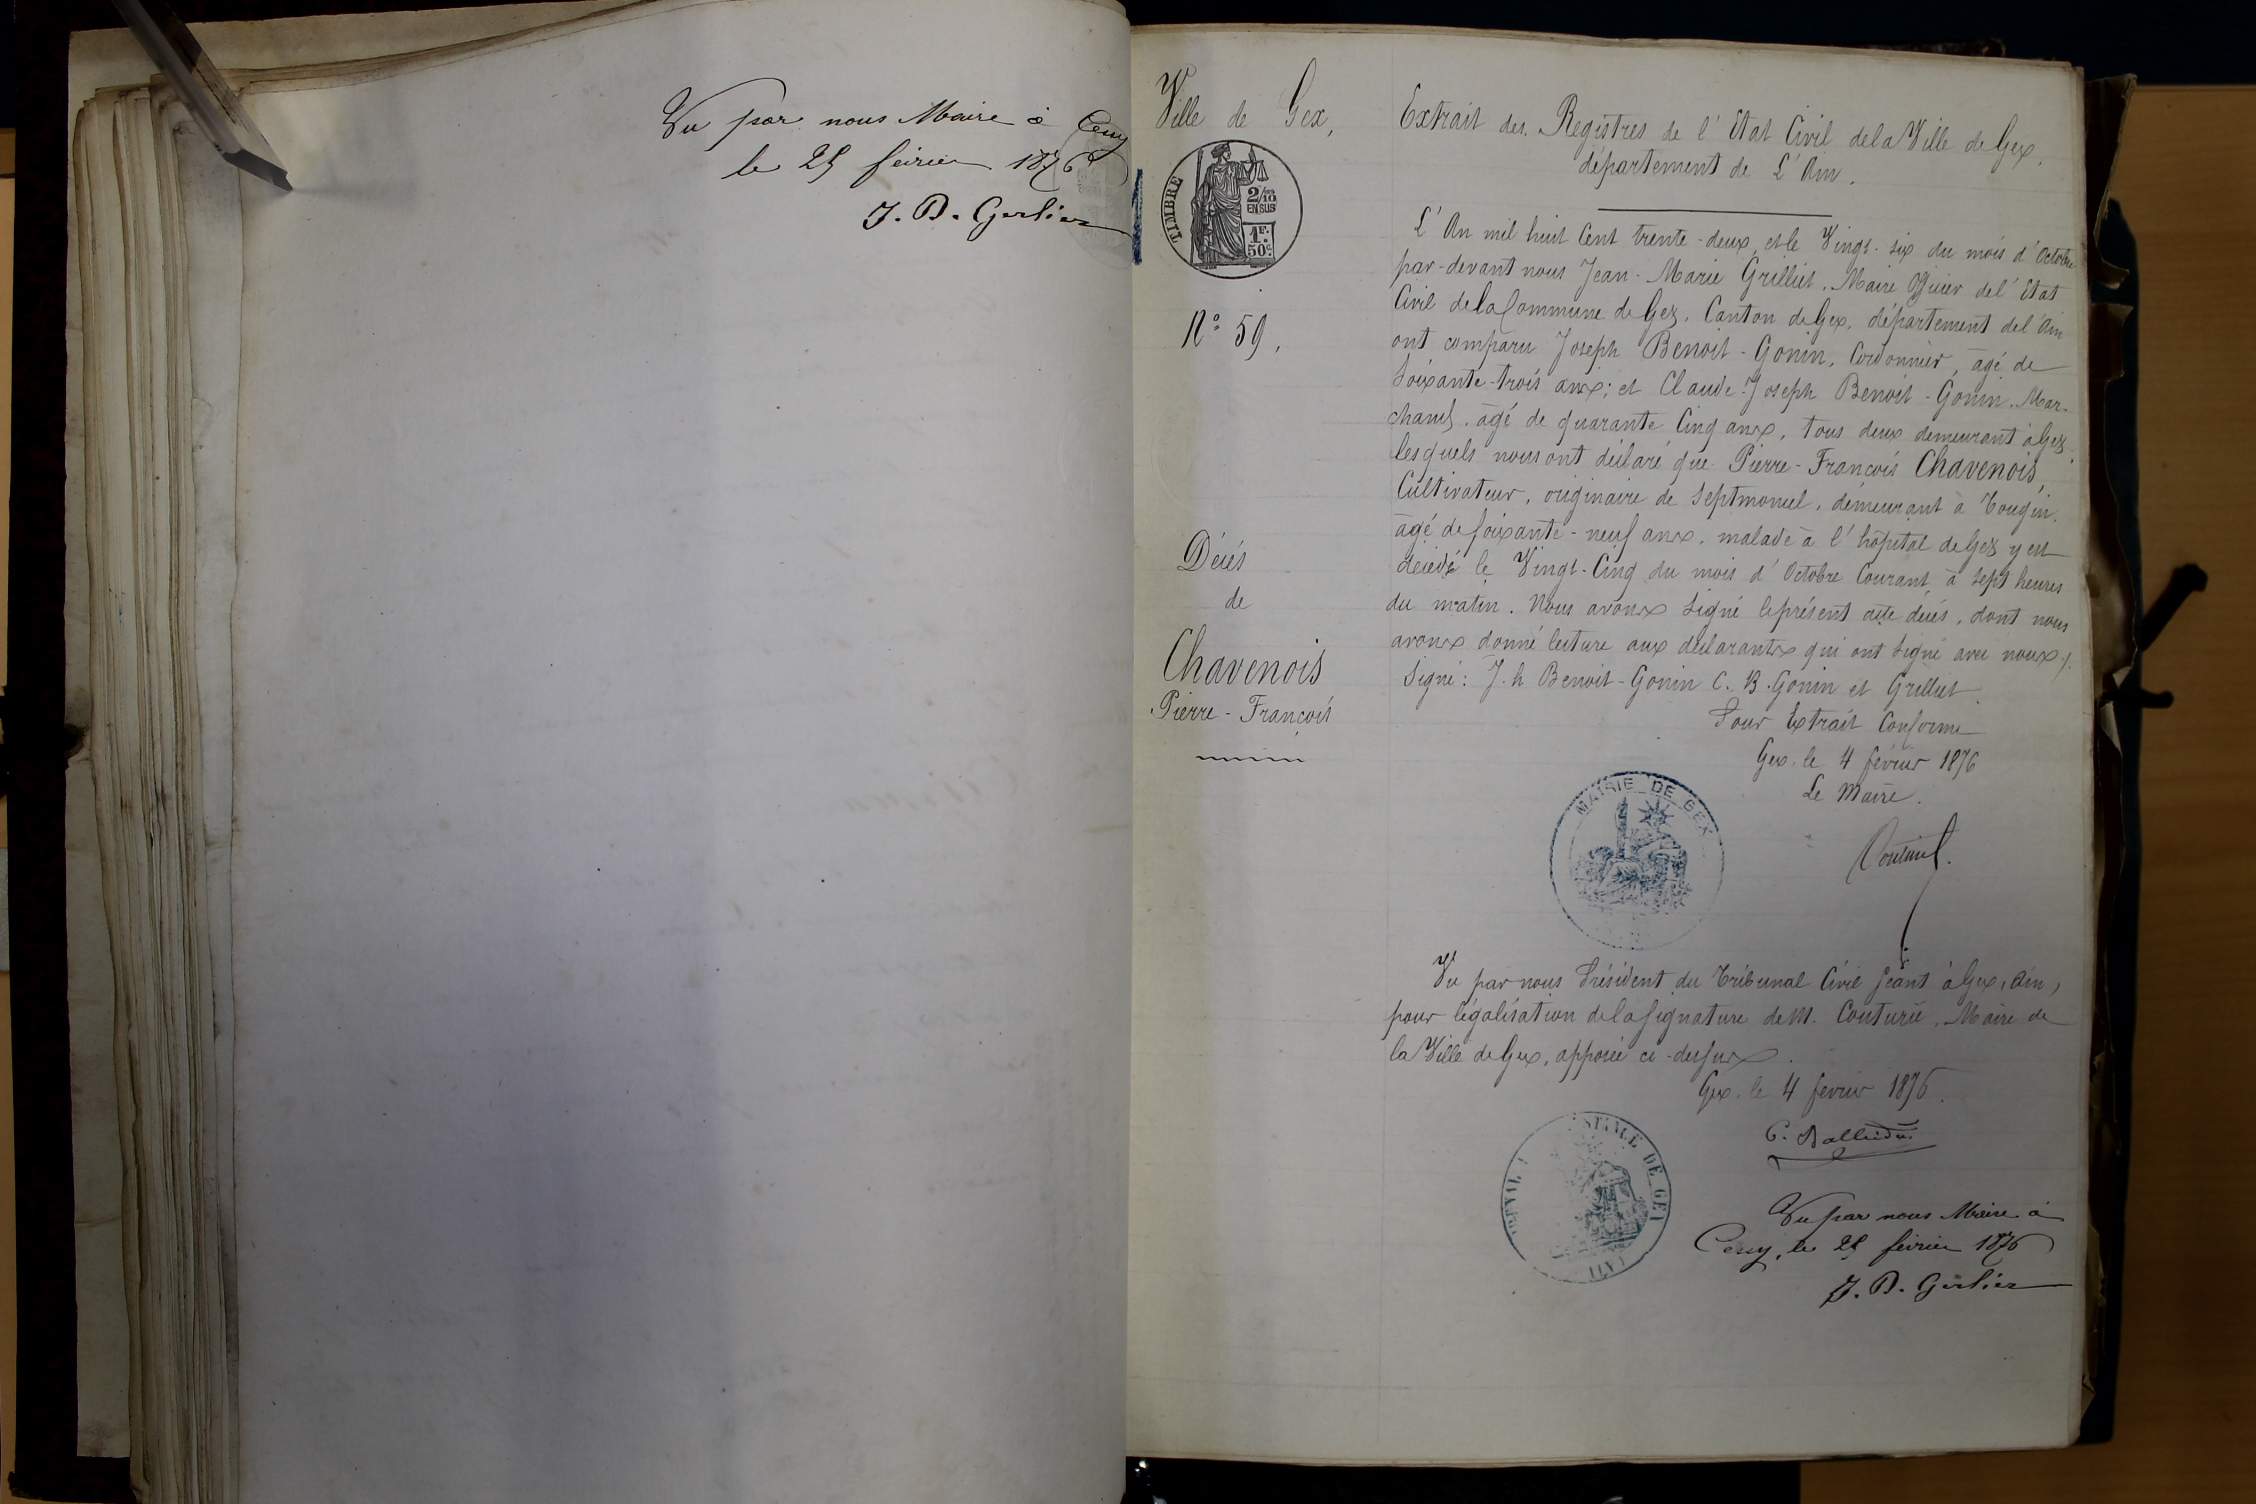 Vu par nous Maire à Cessy
le 25 février 1876
J. B. Gerlier
Ville de Gex,
TIMBRE
2/10
EN SUS
1F.
50c.
N° 59,
Décés
de
Chavenois
Pierre-François
Extrait des Registres de l'Etat Civil de la Ville de Gex,
département de L'Ain.
L'An mil huit Cent trente-deux, et le Vingt-six du mois d'Octobre
par-devant nous Jean-Marie Grilliet, Maire Officier de l'Etat
Civil de la Commune de Gex, Canton de Gex, département de l'Ain
ont comparu Joseph Benoit-Gonin, Cordonnier, agé de
Soixante-trois ans; et Claude-Joseph Benoit-Gonin, Mar-
chand, agé de quarante Cinq ans, tous deux demeurant à Gex,
lesquels nous ont déclaré que Pierre-François Chavenois,
Cultivateur, originaire de Septmoncel, demeurant à Tougin,
agé de soixante-neuf ans, malade à l'hôpital de Gex y est
décédé le Vingt-Cinq du mois d'Octobre Courant à Sept heures
du matin. Nous avons Signé le présent acte décés, dont nous
avons donné lecture aux déclarants qui ont Signé avec nous
Signé: J.h Benoit-Gonin C. B. Gonin et Grilliet.
Pour Extrait Conforme
Gex, le 4 février 1876
Le Maire.
MAIRIE DE GEX
Vu par nous Président du Tribunal Civil séant à Gex, (Ain,)
pour légalisation de la signature de M. Couturié, Maire de
la Ville de Gex, apposée ci-dessus.
Gex, le 4 fevrier 1876.
DE GEX
(AIN)
Vu par nous Maire à
Cessy, le 25 février 1876
J. B. Gerlier